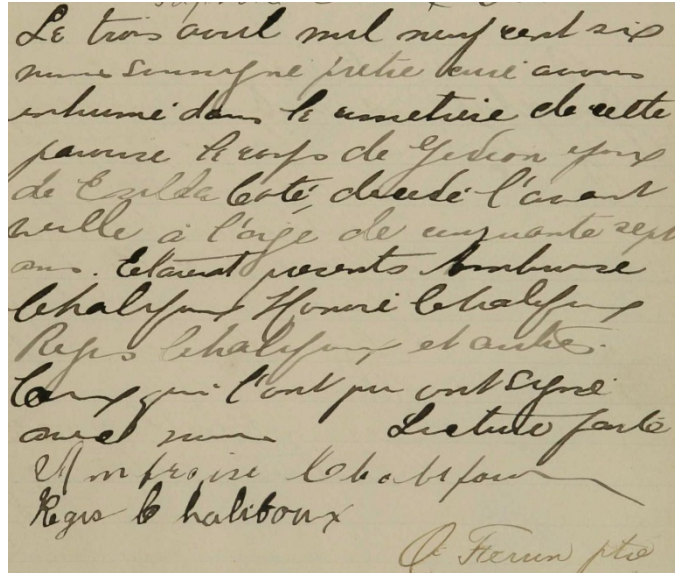 Le trois avril mil neuf cent six
nous soussigné prêtre curé avons
inhumé dans le cimetière de cette
paroisse le corps de Gédéon époux
de Exilda Coté, décédé l'avant
veille à l'age de cinquante sept
ans. Etaient présents Ambroise
Chalifoux Honoré Chalifoux
Régis Chalifoux et autres.
Ceux qui l'ont pu ont signé
avec nous Lecture faite
Ambroise Chalifoux
Regis Chalifoux
Ferron ptre